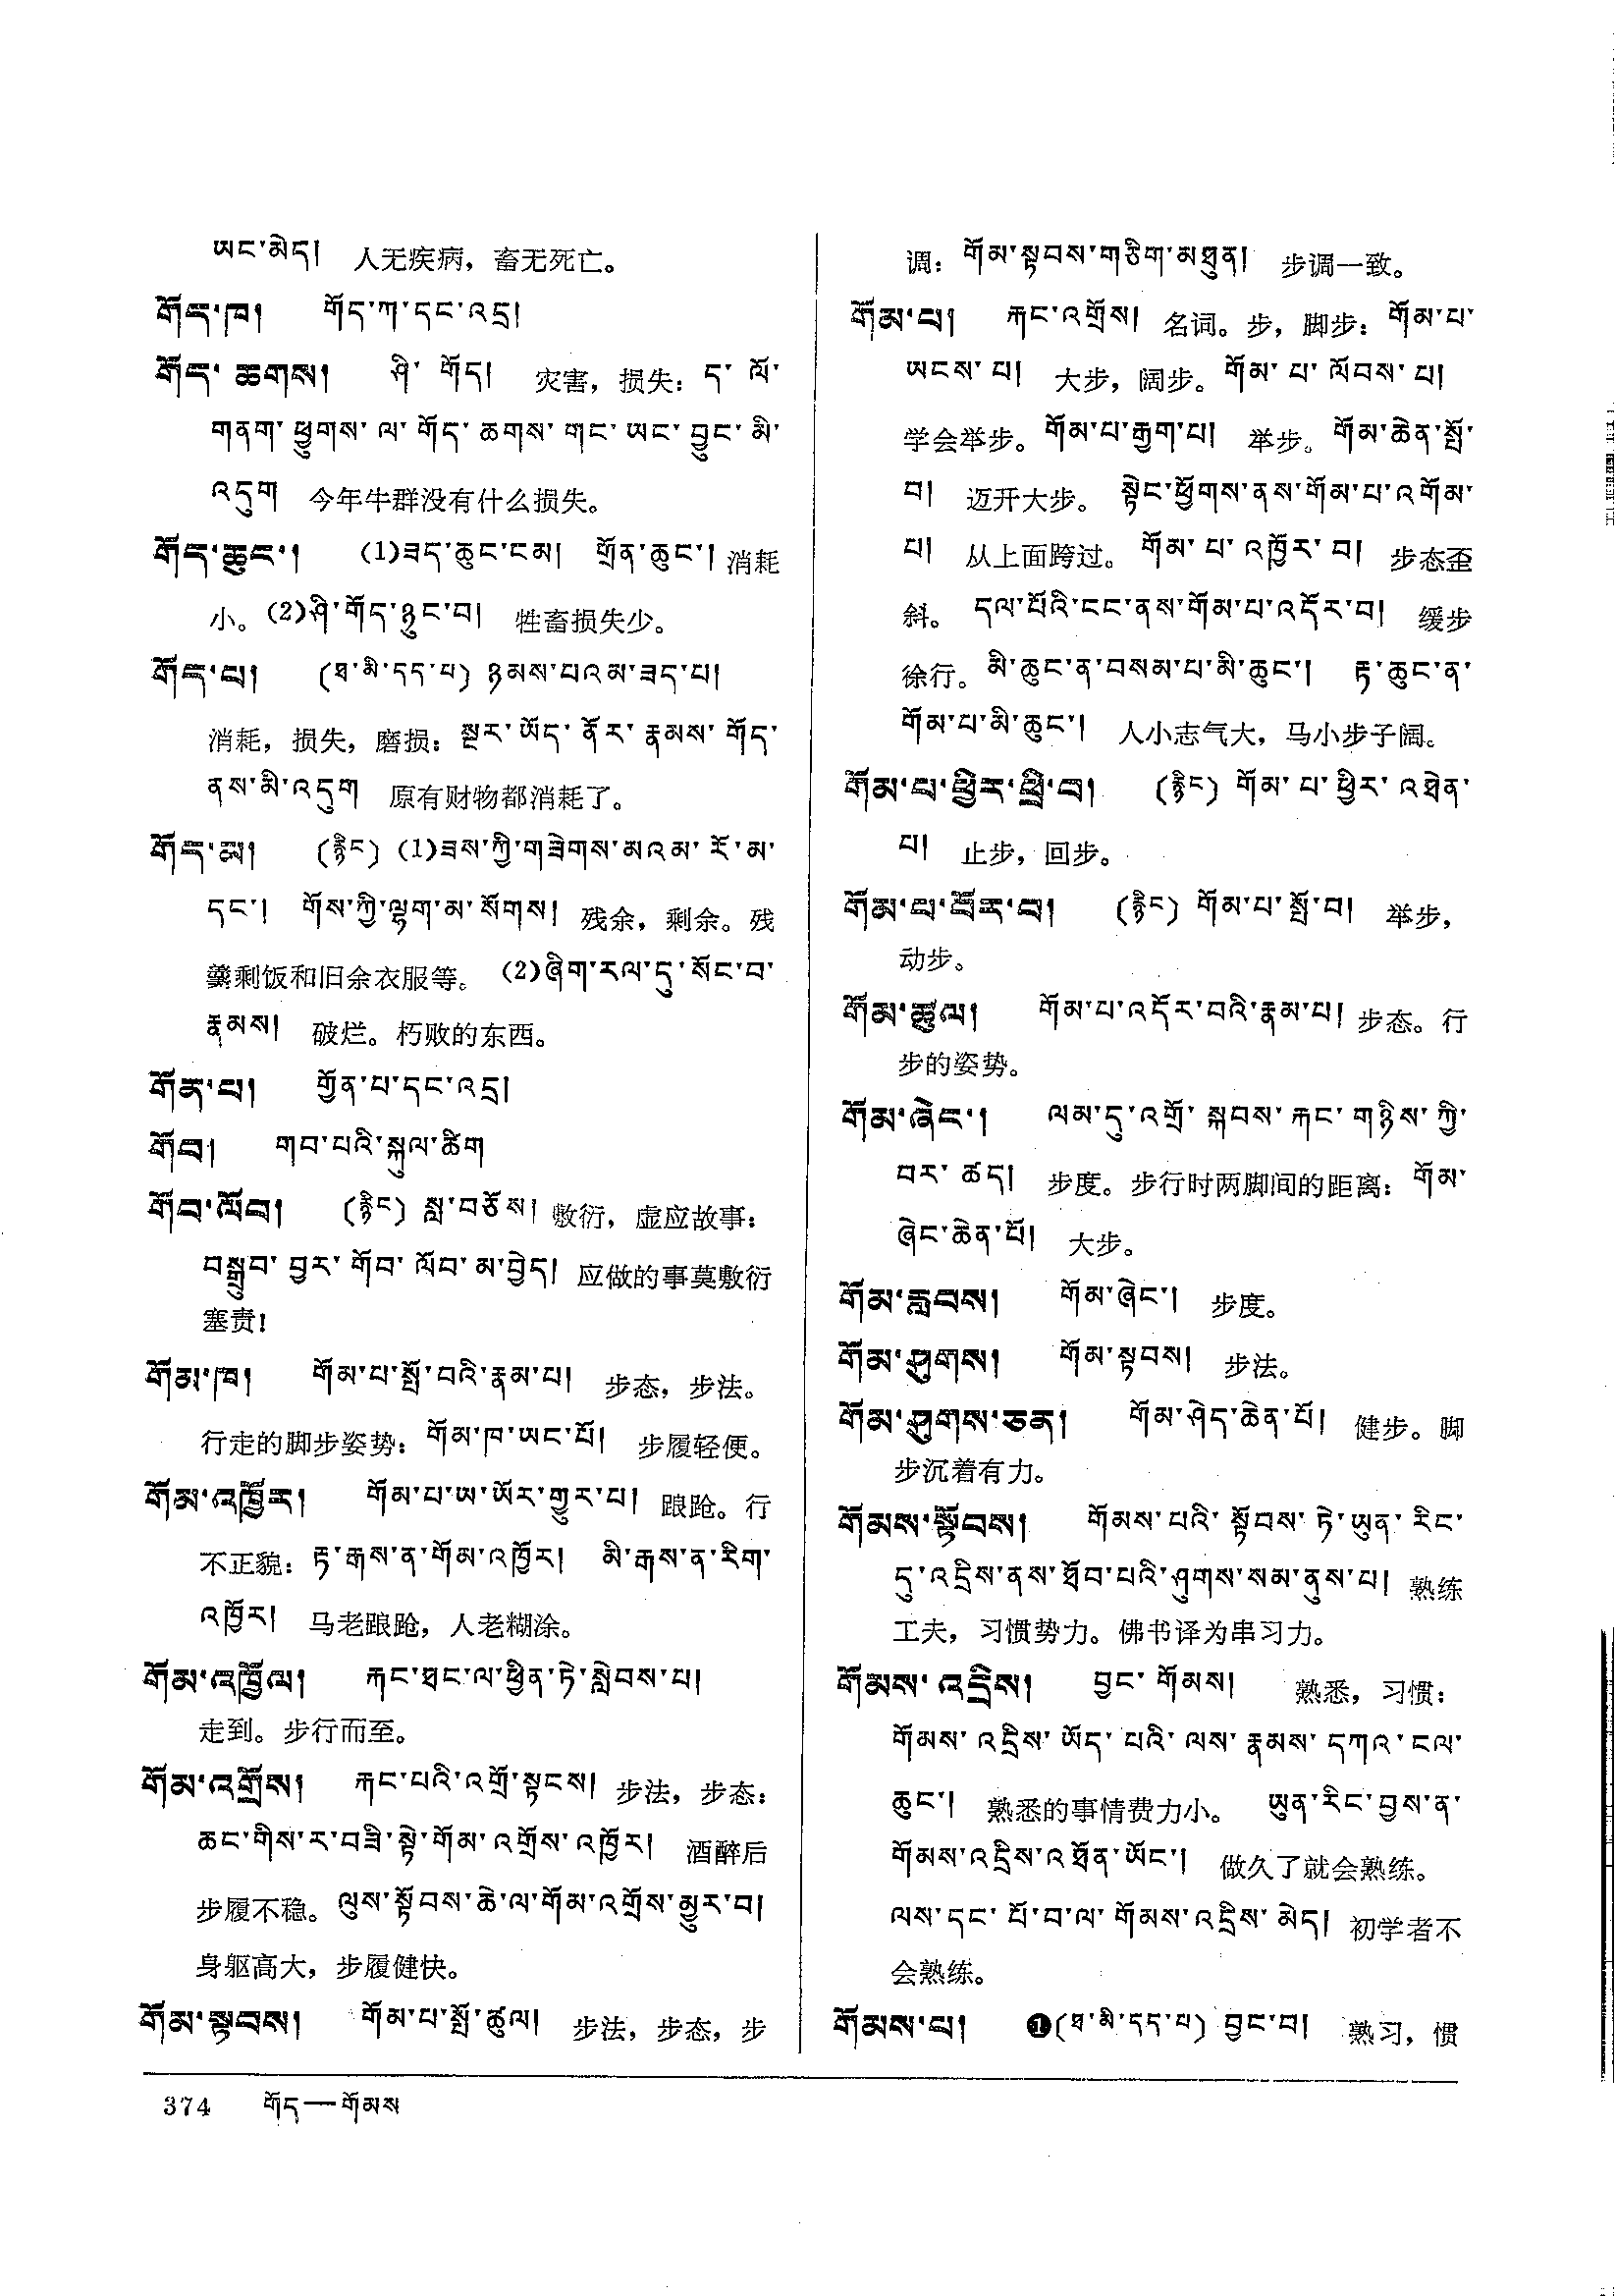 ཡང་མེད།  人无疾病，畜无死亡。
གོད་ཁ།  གོད་ཀ་དང་འདྲ།
གོད་ཆགས།  ཤི་གོད།  灾害，损失：ད་ལོ་
གནག་ཕྱུགས་ལ་གོད་ཆགས་གང་ཡང་བྱུང་མི་
འདུག  今年牛群没有什么损失。
གོད་ཆུང་།  (1)ཟད་ཆུང་ངམ།  གྲོན་ཆུང་། 消耗
小。(2)ཤི་གོད་ཉུང་བ།  牲畜损失少。
གོད་པ།  (ཐ་མི་དད་པ) ཉམས་པའམ་ཟད་པ།
消耗，损失，磨损：སྔར་ཡོད་ནོར་རྣམས་གོད་
ནས་མི་འདུག  原有财物都消耗了。
གོད་མ།  (རྙིང) (1)ཟས་ཀྱི་གཟེགས་མའམ་རོ་མ་
དང་།  གོས་ཀྱི་ལྷག་མ་སོགས།  残余，剩余。残
羹剩饭和旧余衣服等。(2)ཞིག་རལ་དུ་སོང་བ་
རྣམས།  破烂。朽败的东西。
གོན་པ།  གྱོན་པ་དང་འདྲ།
གོབ།  གབ་པའི་སྐུལ་ཚིག
གོབ་ལོབ།  (རྙིང) སླ་བཅོས། 敷衍，虚应故事：
བསྒྲུབ་བྱར་གོབ་ལོབ་མ་བྱེད། 应做的事莫敷衍
塞责！
གོམ་ཁ།  གོམ་པ་སྤོ་བའི་རྣམ་པ།  步态，步法。
行走的脚步姿势：གོམ་ཁ་ཡང་པོ།  步履轻便。
གོམ་འཁྱོར།  གོམ་པ་ཡ་ཡོར་གྱུར་པ། 踉跄。行
不正貌：རྟ་རྒས་ན་གོམ་འཁྱོར།  མི་རྒས་ན་རིག་
འཁྱོར།  马老踉跄，人老糊涂。
གོམ་འཁྱོལ།  རྐང་ཐང་ལ་ཕྱིན་ཏེ་སླེབས་པ།
走到。步行而至。
གོམ་འགྲོས།  རྐང་པའི་འགྲོ་སྟངས། 步法，步态：
ཆང་གིས་ར་བཟི་སྟེ་གོམ་འགྲོས་འཁྱོར།  酒醉后
步履不稳。ལུས་སྟོབས་ཆེ་ལ་གོམ་འགྲོས་མྱུར་བ།
身躯高大，步履健快。
གོམ་སྟབས།  གོམ་པ་སྤོ་ཚུལ།  步法，步态，步
调：གོམ་སྟབས་གཅིག་མཐུན།  步调一致。
གོམ་པ།  རྐང་འགྲོས།  名词。步，脚步：གོམ་པ་
ཡངས་པ།  大步，阔步。གོམ་པ་ལོབས་པ།
学会举步。གོམ་པ་རྒྱག་པ།  举步。གོམ་ཆེན་སྤོ་
བ།  迈开大步。སྟེང་ཕྱོགས་ནས་གོམ་པ་འགོམ་
པ།  从上面跨过。གོམ་པ་འཁྱོར་བ།  步态歪
斜。དལ་པོའི་ངང་ནས་གོམ་པ་འདོར་བ།  缓步
徐行。མི་ཆུང་ན་བསམ་པ་མི་ཆུང་།  རྟ་ཆུང་ན་
གོམ་པ་མི་ཆུང་།  人小志气大，马小步子阔。
གོམ་པ་ཕྱིར་ཕྲི་བ།  (རྙིང) གོམ་པ་ཕྱིར་འཐེན་
པ།  止步，回步。
གོམ་པ་བོར་བ།  (རྙིང) གོམ་པ་སྤོ་བ།  举步，
动步。
གོམ་ཚུལ།  གོམ་པ་འདོར་བའི་རྣམ་པ། 步态。行
步的姿势。
གོམ་ཞེང་།  ལམ་དུ་འགྲོ་སྐབས་རྐང་གཉིས་ཀྱི་
བར་ཚད།  步度。步行时两脚间的距离：གོམ་
ཞེང་ཆེན་པོ།  大步。
གོམ་རླབས།  གོམ་ཞེང་།  步度。
གོམ་ཤུགས།  གོམ་སྟབས།  步法。
གོམ་ཤུགས་ཅན།  གོམ་ཤེད་ཆེན་པོ།  健步。脚
步沉着有力。
གོམས་སྟོབས།  གོམས་པའི་སྟོབས་ཏེ་ཡུན་རིང་
དུ་འདྲིས་ནས་ཐོབ་པའི་ཤུགས་སམ་ནུས་པ། 熟练
工夫，习惯势力。佛书译为串习力。
གོམས་འདྲིས།  བྱང་གོམས།  熟悉，习惯：
གོམས་འདྲིས་ཡོད་པའི་ལས་རྣམས་དཀའ་ངལ་
ཆུང་།  熟悉的事情费力小。ཡུན་རིང་བྱས་ན་
གོམས་འདྲིས་འཐོན་ཡོང་།  做久了就会熟练。
ལས་དང་པོ་བ་ལ་གོམས་འདྲིས་མེད།  初学者不
会熟练。
གོམས་པ།  ❶(ཐ་མི་དད་པ) བྱང་བ།  熟习，惯
374  གོད—གོམས